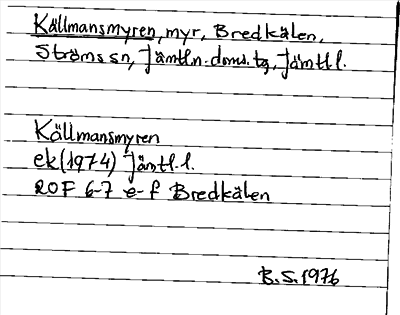 Källmansmyren, myr, Bredkälen,
Ströms sn, Jämtl.n. doms. tg, Jämtl l.
Källmansmyren
ek (1974) Jämtl. l.
20F 6-7 e-f Bredkälen
B.S. 1976